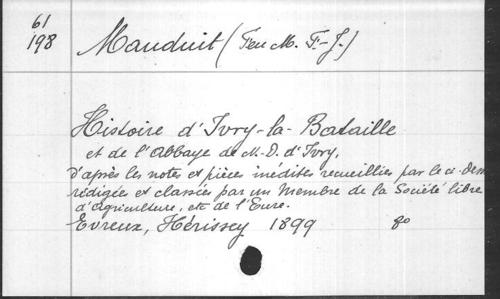 61
198
Mauduit (Feu M. F.-J.)
Histoire d'Ivry-la-Bataille
et de l'Abbaye de N.-D. d'Ivry,
d'après les notes et pièces inédites recueillies par le
rédigée et classée par un Membre de la Société libre
d'Agriculture, etc de l'Eure.
Evreux, Hérissey 1899 8º